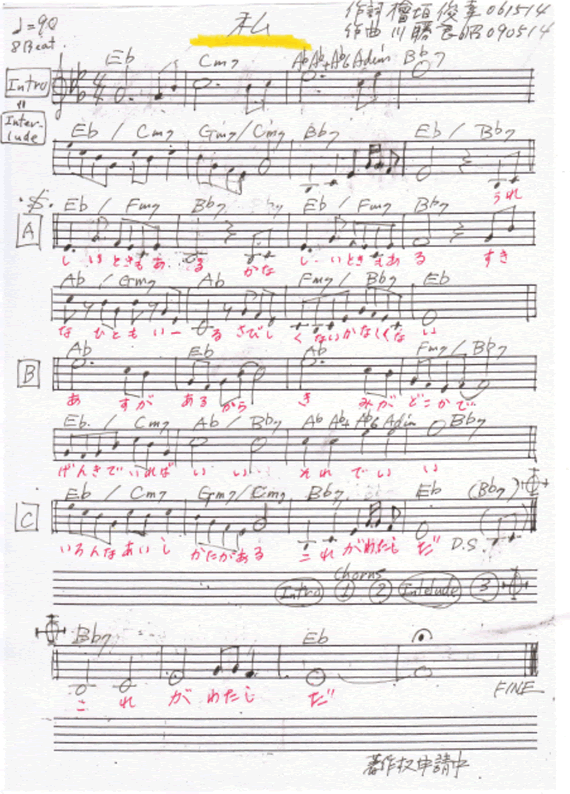 ♩=90 私 作詞 檜垣 俊幸 061514
8 Beat. 作曲 川勝 良昭 090514
Intro Eb Cm7 Ab Ab+ Ab6 Adim Bb7
"
Inter-lude Eb / Cm7 Gm7/Cm7 Bb7 Eb / Bb7
うれ
A Eb / Fm7 Bb7 Eb / Fm7 Bb7
しいときもある かな しいときもある すき
Ab / Gm7 Ab Fm7 / Bb7 Eb
なひともいーる さびしくないかなしくない
B Ab Eb Ab Fm7 / Bb7
あすがあるから きみがどこかで
Eb / Cm7 Ab / Bb7 Ab Ab+ Ab6 Adim Bb7
げんきでいればいい それでいい
C Eb / Cm7 Gm7/Cm7 Bb7 Eb (Bb7)
いろんなあいしかたがある これがわたしだ D.S.
Chorus
Intro 1 2 Interlude 3
Bb7 Eb
これがわたしだ
FINE
著作权申請中